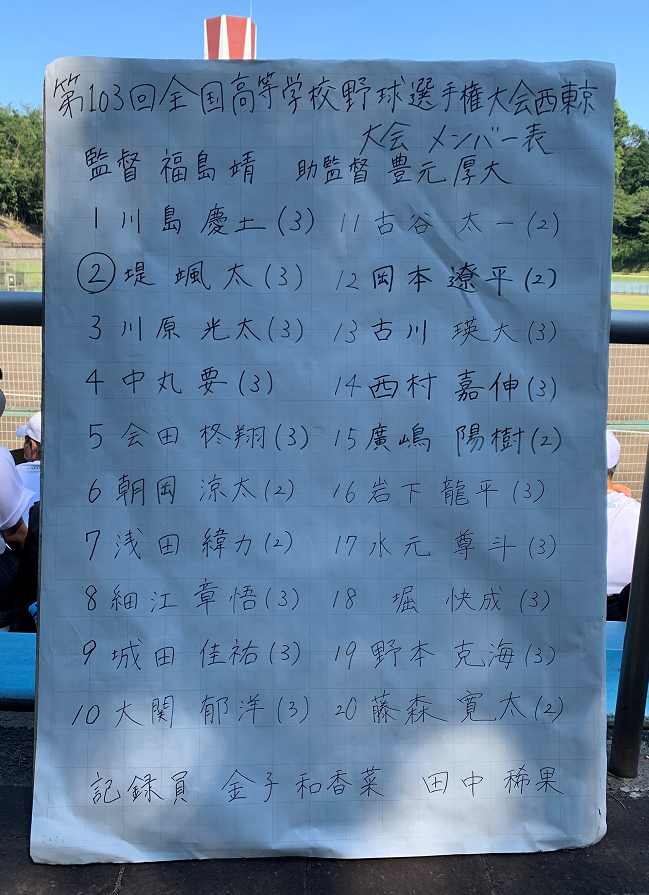 第103回全国高等学校野球選手権大会西東京
大会 メンバー表
監督 福島靖 助監督 豊元厚大
1 川島 慶士(3) 11 古谷 太一(2)
② 堤 颯太(3) 12 岡本遼平(2)
3 川原 光太(3) 13 古川 瑛大(3)
4 中丸要(3) 14 西村 嘉伸(3)
5 会田 柊翔(3) 15 廣嶋 陽樹(2)
6 朝岡 涼太(2) 16 岩下 龍平(3)
7 浅田 緯力(2) 17 水元 尊斗(3)
8 細江 章悟(3) 18 堀 快成(3)
9 城田 佳祐(3) 19 野本 克海(3)
10 大關 郁洋(3) 20 藤森 寛太(2)
記録員 金子 和香菜 田中 稀果